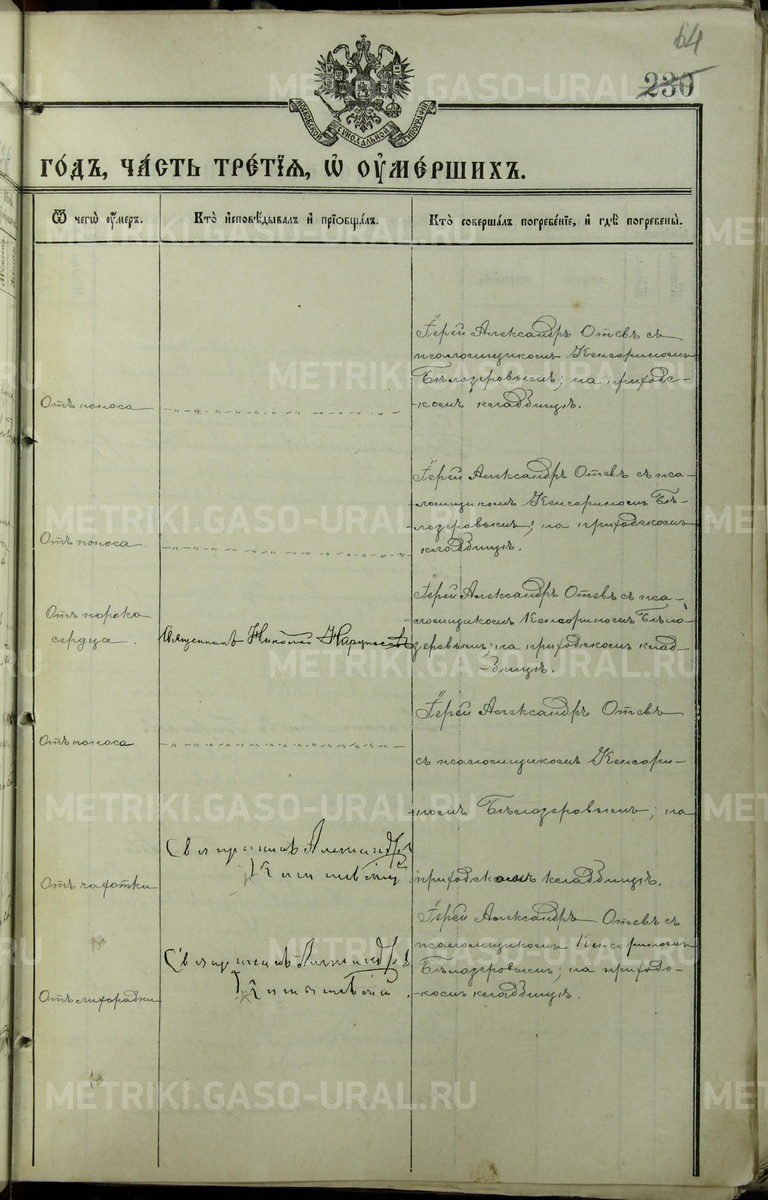 64
230
МОСКОВСКОЙ СѴНОДАЛЬНОЙ ТИПОГРАФІИ
ГО́ДЪ, ЧА́СТЬ ТРЕ́ТЇЯ, Ѽ ОУ҆МЕ́РШИХЪ.
Ѿ чегѡ̀ ᲂу҆́меръ.
Кто̀ и҆сповѣ́дывалъ и҆ прїѡбща́лъ.
Кто̀ соверша́лъ погребе́нїе, и҆ гдѣ̀ погребены̀.
Іерей Александръ Отевъ съ
псаломщикомъ Кенсориномъ
Бѣлозеровымъ; на приходс-
-комъ кладбищѣ.
Отъ поноса
Іерей Александръ Отевъ съ пса-
-ломщикомъ Кенсориномъ Бѣ-
-лозеровымъ; на приходскомъ
кладбищѣ.
Отъ поноса
Отъ порока
сердца.
Священникъ Николай
Іерей Александръ Отевъ съ пса-
-ломщикомъ Кенсориномъ Бѣло-
зеровымъ; на приходскомъ клад-
-бищѣ.
Отъ поноса
Іерей Александръ Отевъ
съ псаломщикомъ Кенсори-
-номъ Бѣлозеровымъ; на
приходскомъ кладбищѣ.
Отъ чахотки
Священникъ Александръ
Отъ лихорадки
Священникъ Александръ
Іерей Александръ Отевъ съ
псаломщикомъ Кенсориномъ
Бѣлозеровымъ; на приходс-
-комъ кладбищѣ.
METRIKI.GASO-URAL.RU